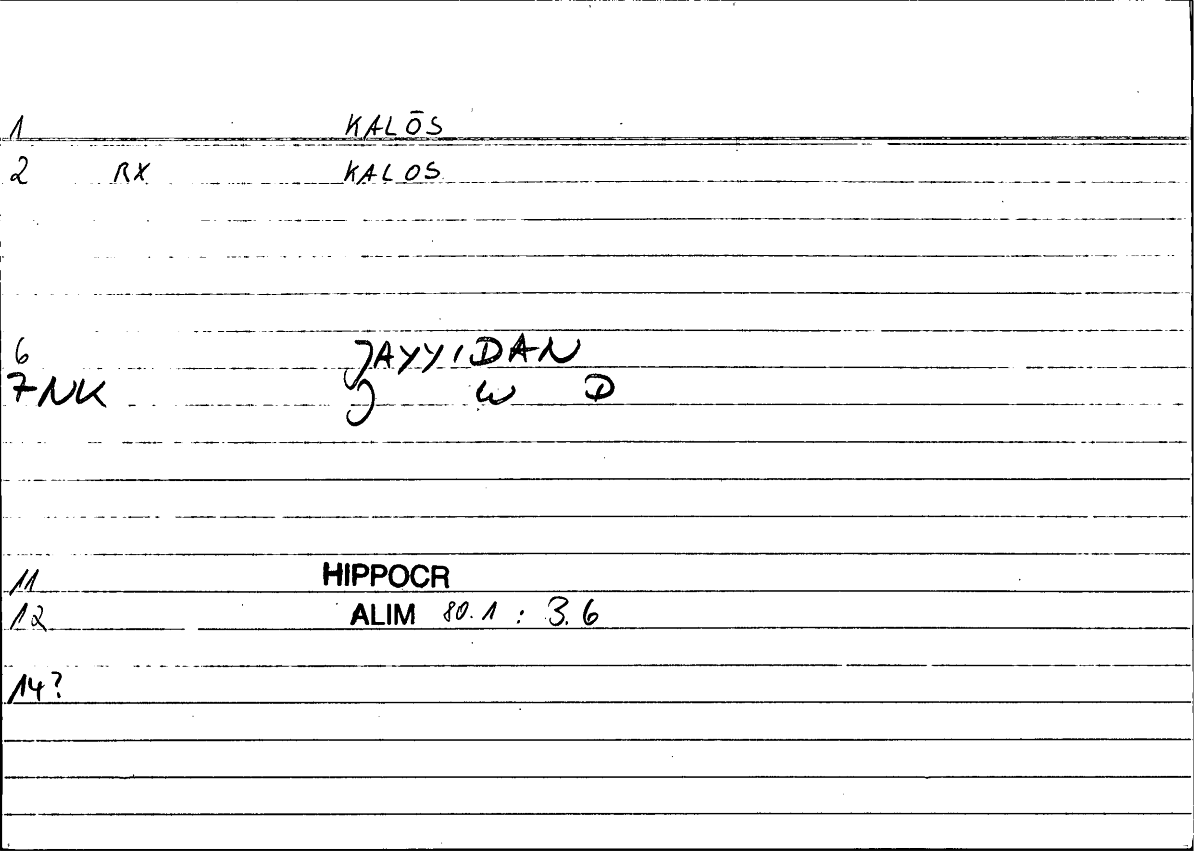 1 KALŌS
2 RX KALOS
6 JAYYIDAN
7 NK J W D
11 HIPPOCR
12 ALIM 80.1 : 3.6
14?